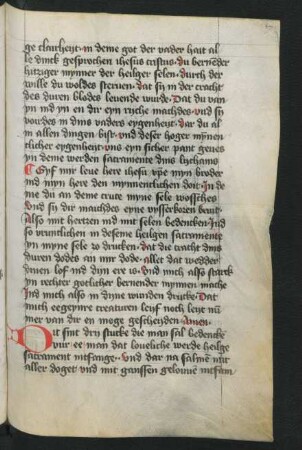 ge clairheit · in deme got der vader hait al
le dinck gesprochen ihesus cristus · du bernender
hitziger mynner der heilger selen · durch der
wille du woldes sterven · dat sy in der cracht
des duren blodes levende wurde · Dat du van
yn ind yn en dir eyn ryche machdes · vnd sy
voirdes in dins vaders eygenheit · dar du al
in allen dingen bist · vnd deser hoger mynen
clicher eygenheit · vns eyn sicher pant geues
yn deme werden sacramente dins lychams
Gyf mir leue here ihesu xpe myn broder
ind myn here den mynnentlichen doit · In de
me du an deme crute myne sele woesches
vnd sy dir machdes eyne vysserkoren brut
also mit hertzen ind mit selen bedencken · Ind
so vruntlichen in deseme heilgen sacramente
yn myne sele zo drucken · dat die cracht dins
duren dodes an mir dode · allet dat wedder
dinen lof ind dyn ere is · vnd mich also starck
yn rechter goetlicher bernender mynnen mache
Ind mich also in dyne wunden drucke · Dat
mich eegeynre creaturen leif noch leyt nu
mer van dir en moge gescheyden Amen ·
Dit sint dry stucke die man sal bedencken
vur ee man dat loueliche werde heilge
sacrament intfange · vnd dar na salmen mit
aller doget vnd mit gantzen gelouuen intfain